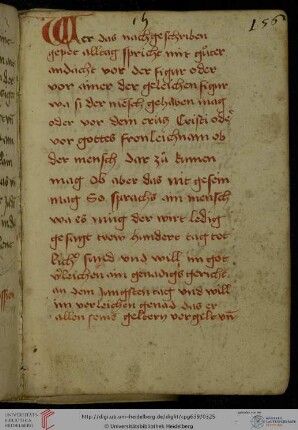 156
Wer das nachgeschriben
gepet alltag spricht mit guter
andacht vor der figur oder
vor ainer der geleichen figur
wa si der mēsch gehaben mag
oder vor dem crütz Cristi ode
vor gottes fronleichnam ob
der mensch dar zu kumen
mag Ob aber das nit gesein
mag So sprachs ain mensch
wa es ming der wirt ledig
gesagt hundert tag tot
sund und will im got
verleichen ain genadigs gericht
an dem Jungsten tag und will
im verleichen genad das er
allen seind geltern vergelt
http://digi.ub.uni-heidelberg.de/diglit/cpg639/0325
© Universitätsbibliothek Heidelberg